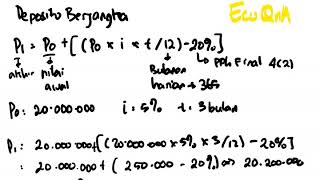 Deposito Berjangka
Eco QnA
P1 = P0 + [(P0 x i x t/12) - 20%]
akhir nilai awal
Bulanan
harian → 365
PPh Final 4(2)
P0: 20.000.000 i = 5% t = 3 bulan
P1: 20.000.000 + [(20.000.000 x 5% x 3/12) - 20%]
: 20.000.000 + (250.000 - 20%) => 20.200.000